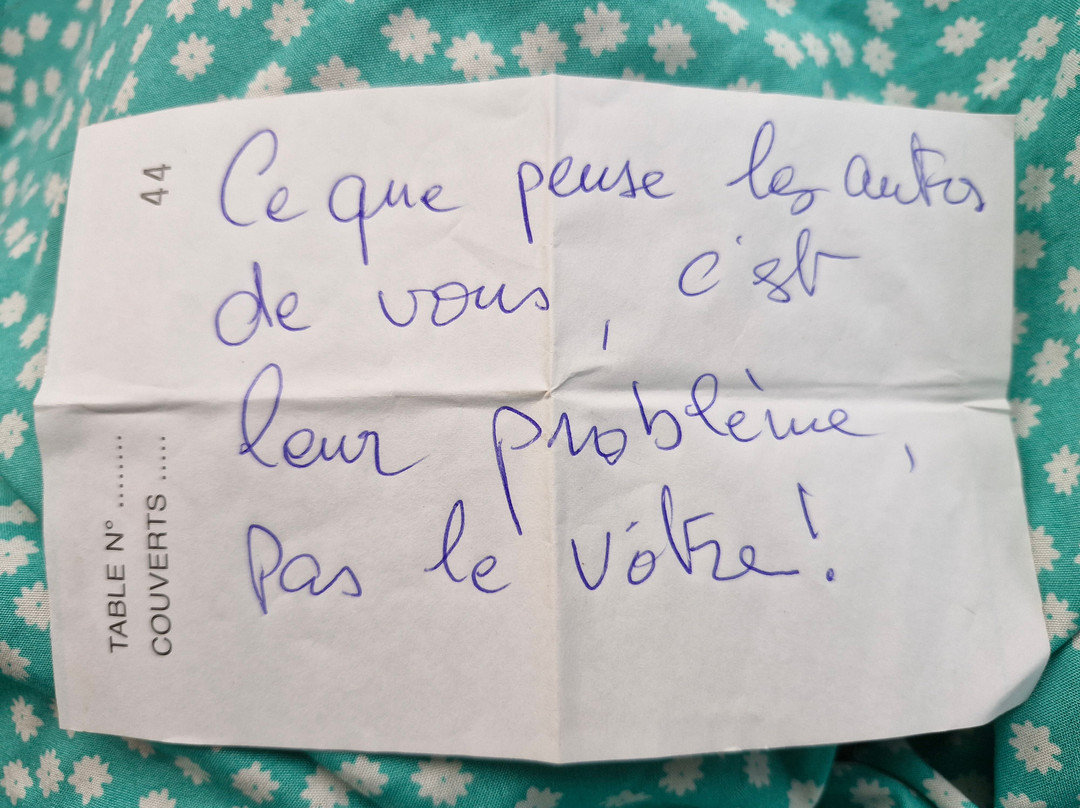 Ce que pense les autres
de vous, c'est
leur problème,
pas le vôtre!
44
TABLE N° ........
COUVERTS .....